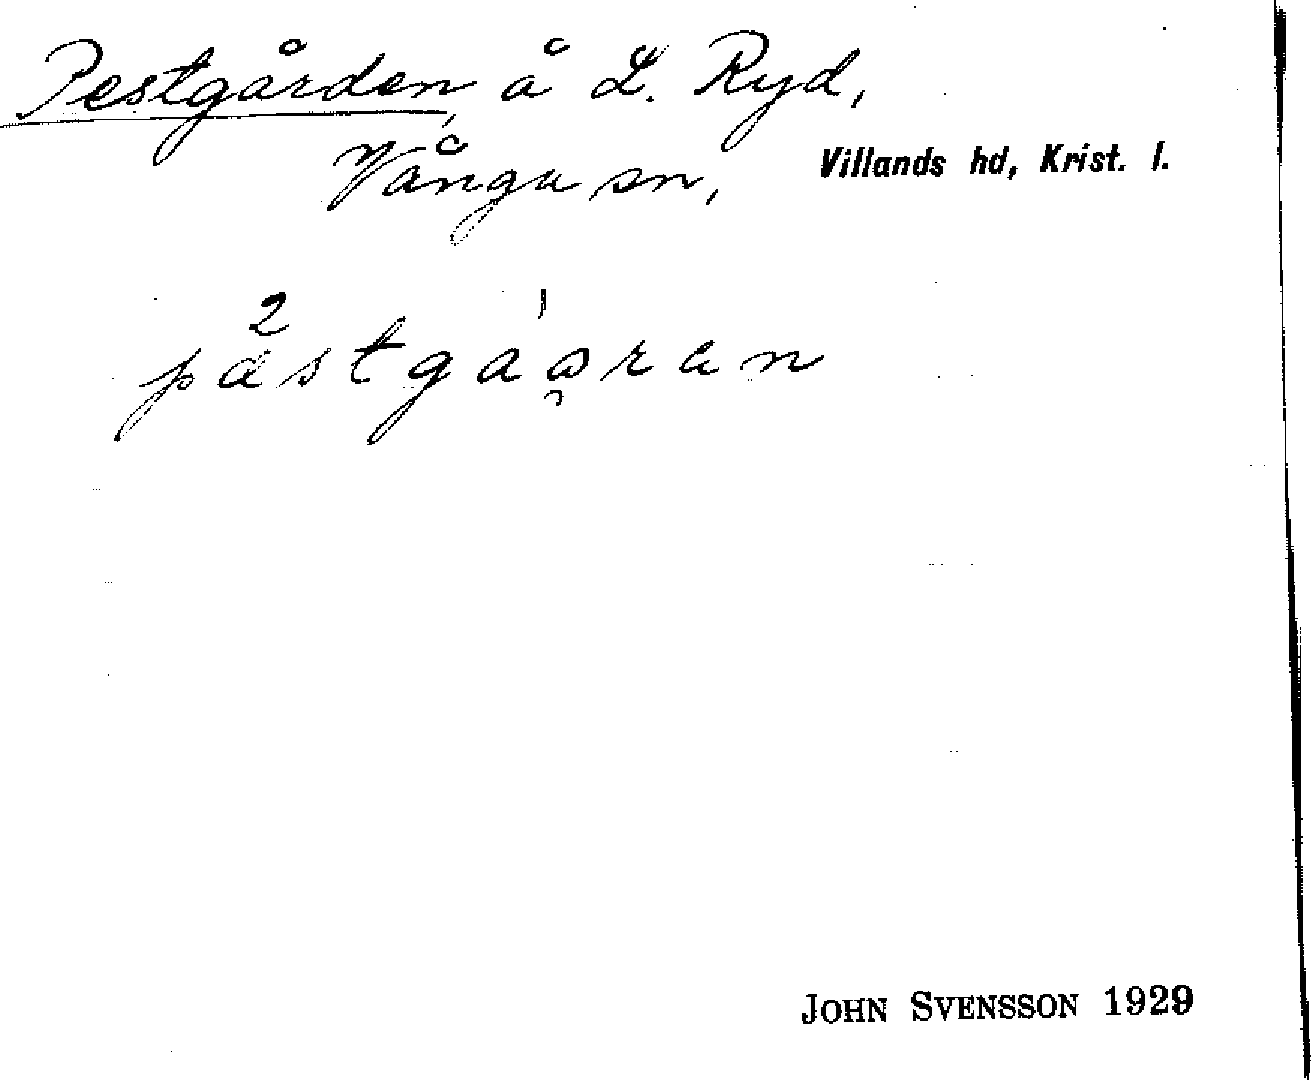 Pestgården, å L. Ryd,
Vånga sn, Villands hd, Krist. l.
John Svensson 1929